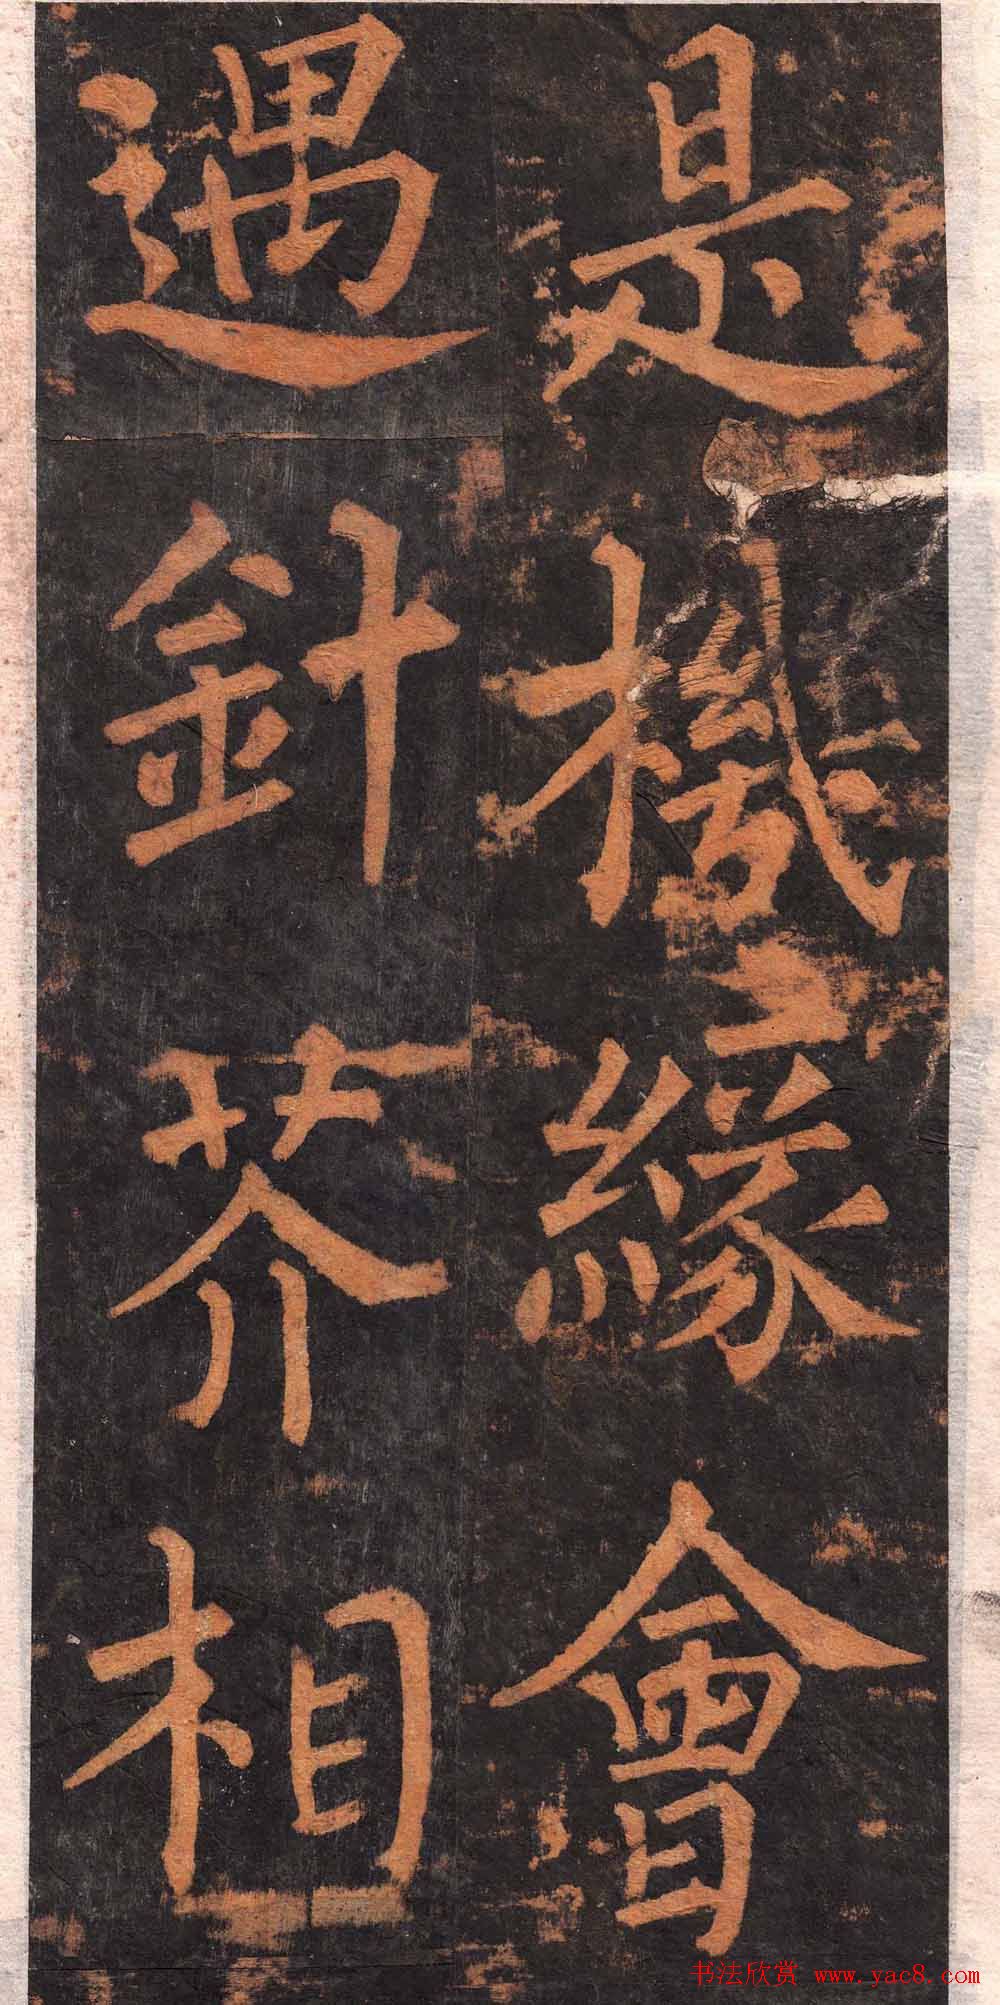 是機緣會
遇針芥相
书法欣赏 www.yac8.com